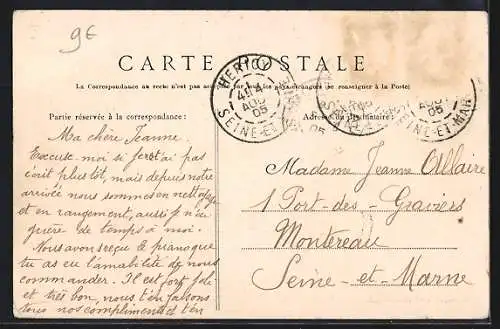 9€
CARTE POSTALE
La Correspondance au recto n'est pas acceptée par tous les pays étrangers (se renseigner à la Poste)
Partie réservée à la correspondance:
Adresse du Destinataire:
HERICY
4 AOU 05
SEINE-ET-
05
SEINE-ET-MAR
Ma chère Jeanne.
Excuse-moi si je t'ai pas
écrit plus tôt, mais depuis notre
arrivée nous sommes en nettoyage
et en rangement, aussi je n'ai
guère de temps à moi.
Nous avons reçu le piano que
tu as eu l'amabilité de nous
commander. Il est fort joli
et très bon, nous t'en faisons
tous nos compliments et t'en
Madame Jeanne Allaire
1 Port-des-Graviers
Montereau
Seine-et-Marne